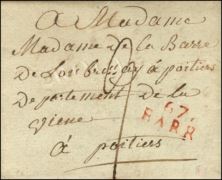 A Madame
Madame de la Barre
de Loubressay à poitiers
departement de la
viene
à poitiers
67
BARR